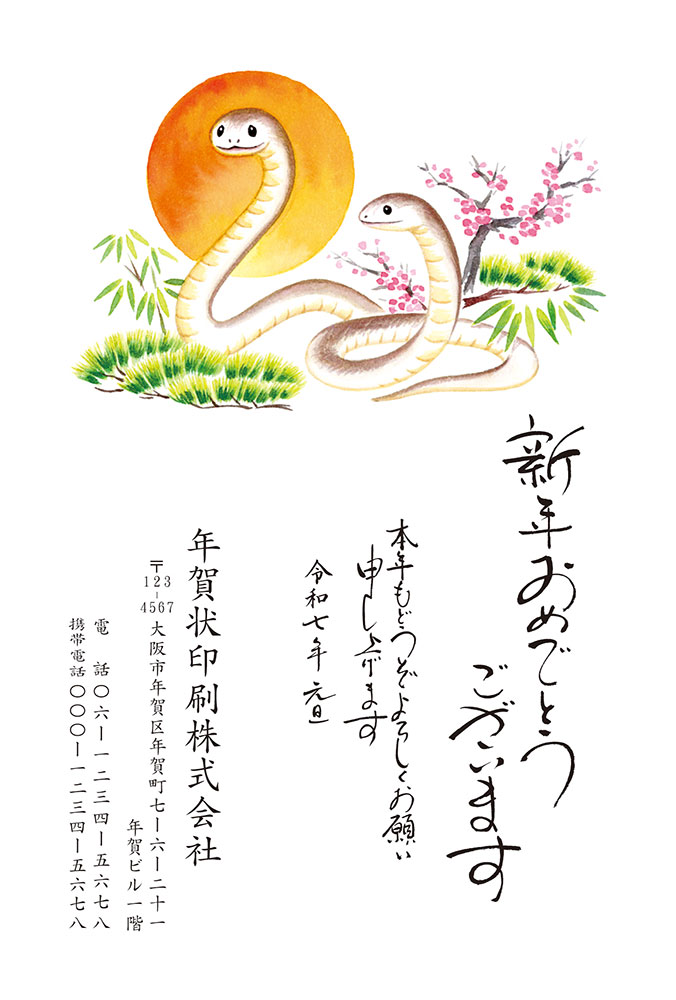 新年おめでとう
ございます
本年もどうぞよろしくお願い
申し上げます
令和七年 元旦
年賀状印刷株式会社
〒123-4567 大阪市年賀区年賀町七ー六ー二十一
年賀ビル一階
電話〇六ー一二三四ー五六七八
携帯電話〇〇〇ー一二三四ー五六七八